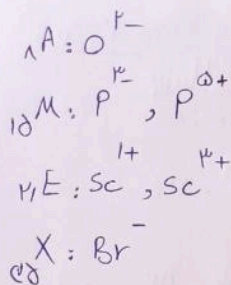 ۸A : O²⁻
۱۵M : P³⁻ , P⁵⁺
۲۱E : Sc¹⁺ , Sc³⁺
۳۵X : Br⁻